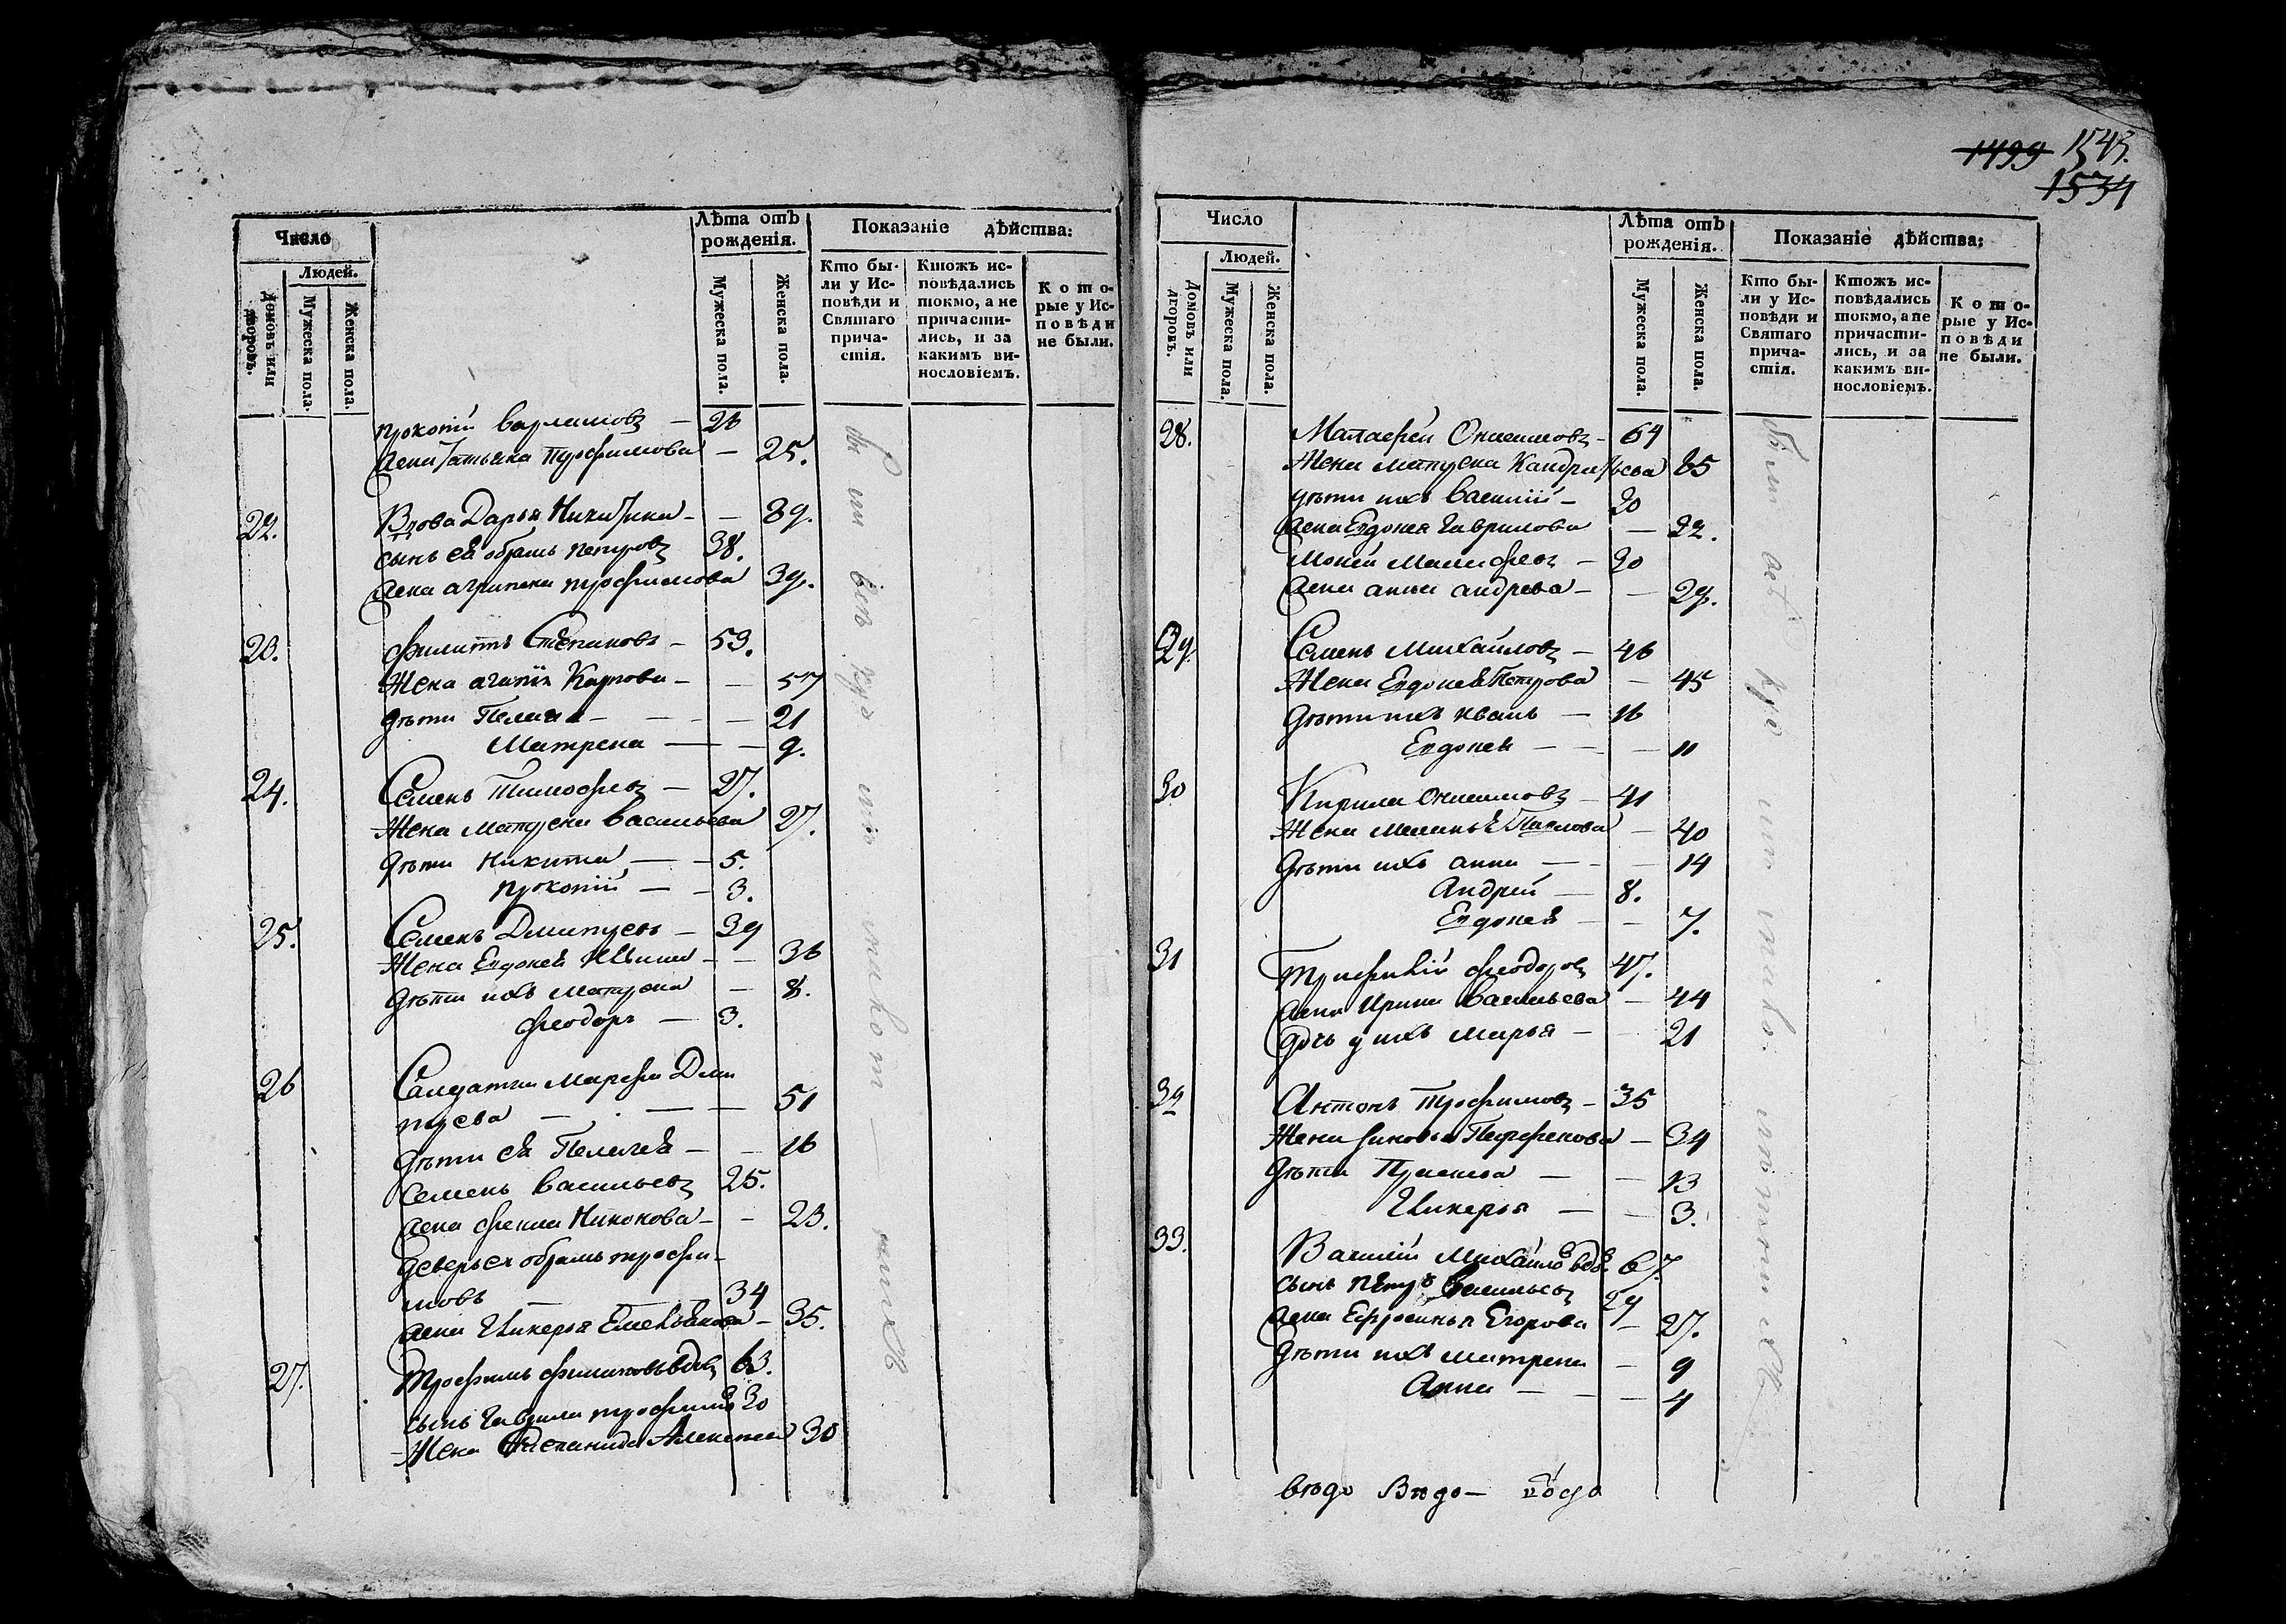 1499 1543.
1534
Число
Людей.
Домовъ или дворовъ.
Мужеска пола.
Женска пола.
Лѣта отъ рожденія.
Мужеска пола.
Женска пола.
Показаніе дѣйства:
Кто бы-
ли у Ис-
повѣди и
Святаго
прича-
стія.
Ктожъ ис-
повѣдались
токмо, а не
причасти-
лись, и за
какимъ ви-
нословіемъ.
Кото-
рые у Ис-
повѣди
не были.
прокопій варламовъ — 26
жена татьяна трофимова — 25.
22. Вдова Дарья Никитина — — 89.
сынъ ея абрамъ петровъ 38.
жена агрипена трофимова 39.
23. филиппъ Степановъ — 59.
Жена агапія Карпова — — 57
дѣти Пелагея — — — 21
Матрена — — 9.
24. Семенъ Тимофеевъ — 27.
Жена матрена васильева 27.
дѣти никита — — 5.
прокопій — — 3.
25. Семенъ Дмитріевъ — 39
Жена Евдокея — — 36
дѣти ихъ матрена — 8.
феодоръ — 3.
26 Салдатка марфа Дми
тріева — — — 51
дѣти ея Пелагея — — 16
семенъ васильевъ 25.
жена фекла Никонова — — 23.
деверь ея абрамъ трофи-
мовъ — — 34
жена Гликерья Емельянова — 35.
27. трофимъ вдов 63.
сынъ гаврила трофимов 30
Жена Степанида Алексеева 30
Число
Людей.
Домовъ или дворовъ.
Мужеска пола.
Женска пола.
Лѣта отъ рожденія.
Мужеска пола.
Женска пола.
Показаніе дѣйства:
Кто бы-
ли у Ис-
повѣди и
Святаго
прича-
стія.
Ктожъ ис-
повѣдались
токмо, а не
причасти-
лись, и за
какимъ ви-
нословіемъ.
Кото-
рые у Ис-
повѣди
не были.
28. Малафей Онисимовъ — 64
Жена матрена 65
дѣти ихъ василій — 30
жена Евдокея гаврилова — 22.
мокей малафеевъ — 20
жена анна андреева — — 29.
29. Семенъ Михайловъ — 46
Жена Евдокея Петрова — 45
дѣти ихъ иванъ — 16
Евдокея — — — 11
30 Кирила онисимовъ — 41
Жена меланья Павлова — 40
дѣти ихъ анна — — — 14
Андрей — 8.
Евдокея — — 7.
31 трифилій феодоровъ 47.
жена Ирина васильева — 44
дочь у нихъ марья — — 21
32 Антонъ трофимовъ — 35
Жена зиновья — 34
дѣти — — 13
Гликерья — — 3.
33. Василій михайловъ вдов. 67.
сынъ петръ васильевъ 29
жена Ефросинья Егорова — 27.
дѣти ихъ матрена — 9
Анна — — — 4